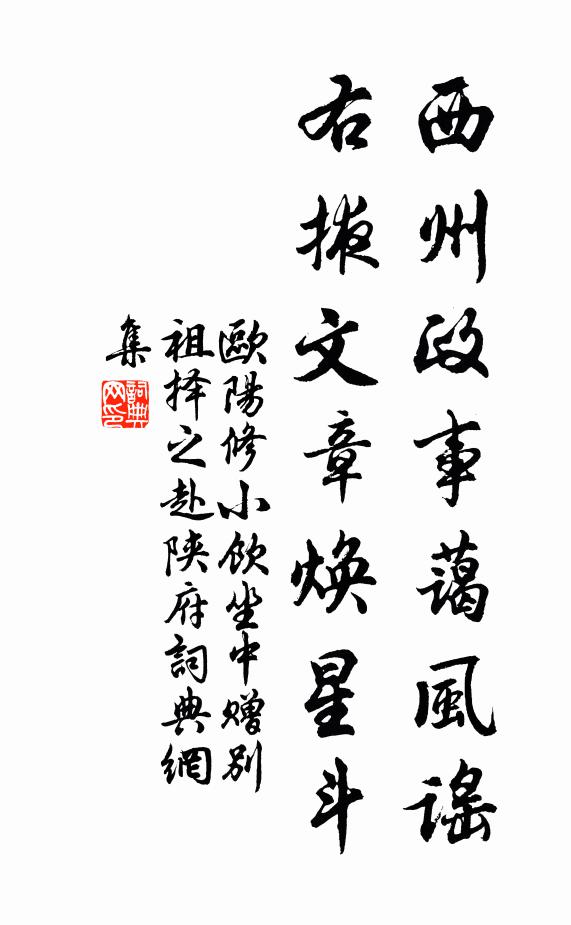 西州政事藹風謠
右掖文章煥星斗
歐陽修小飲坐中贈別
祖择之赴陝府詞典網
集
詞典網印